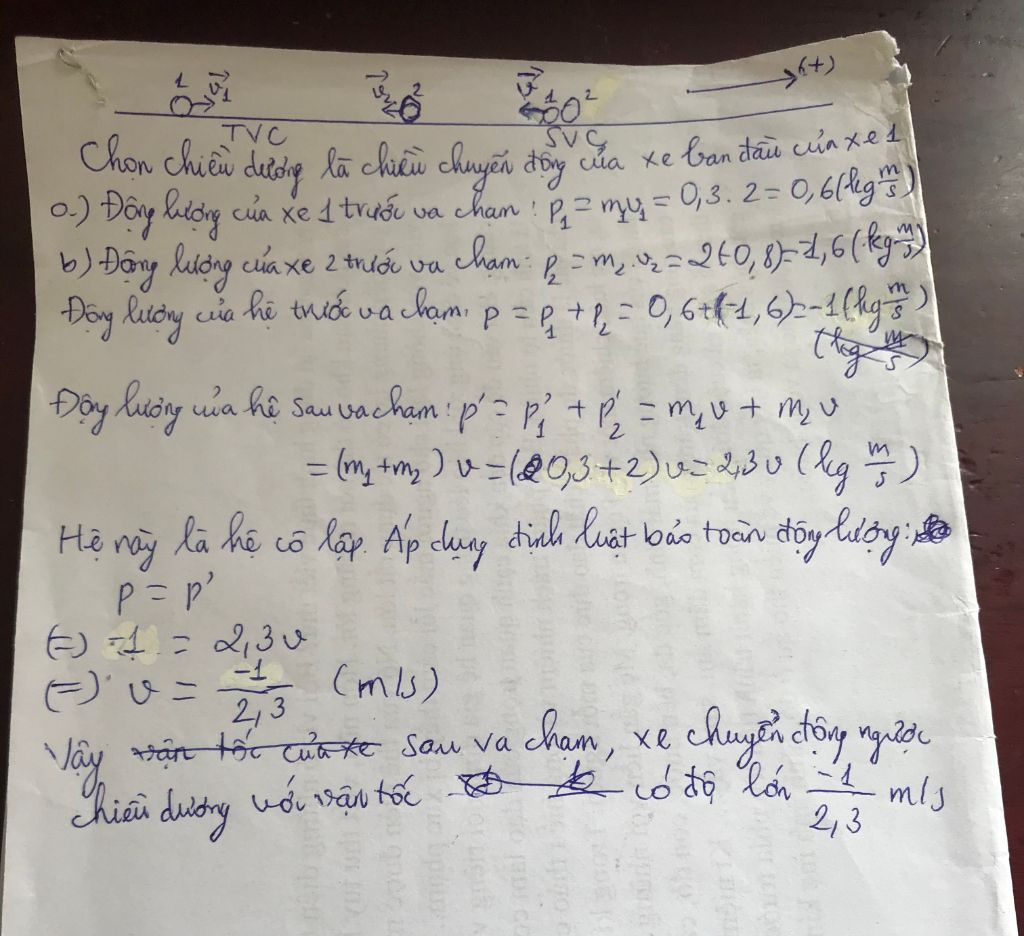 1 v⃗₁ v⃗₂ 2 v⃗ 1 2 (+)
TVC SVC
Chọn chiều dương là chiều chuyển động của xe ban đầu của xe 1
a.) Động lượng của xe 1 trước va chạm : p₁ = m₁v₁ = 0,3 . 2 = 0,6 (kg m/s)
b) Động lượng của xe 2 trước va chạm: p₂ = m₂.v₂ = 2(-0,8)=-1,6 (kg m/s)
Động lượng của hệ trước va chạm: p = p₁ + p₂ = 0,6+(-1,6)=-1 (kg m/s)
(kg m/s)
Động lượng của hệ sau va chạm: p' = p₁' + p₂' = m₁v + m₂v
= (m₁+m₂) v = (0,3+2) v = 2,3v (kg m/s)
Hệ này là hệ cô lập. Áp dụng định luật bảo toàn động lượng:
p = p'
(=) -1 = 2,3v
(=) v = -1/2,3 (m/s)
Vậy vận tốc của xe sau va chạm, xe chuyển động ngược
chiều dương với vận tốc có độ lớn -1/2,3 m/s